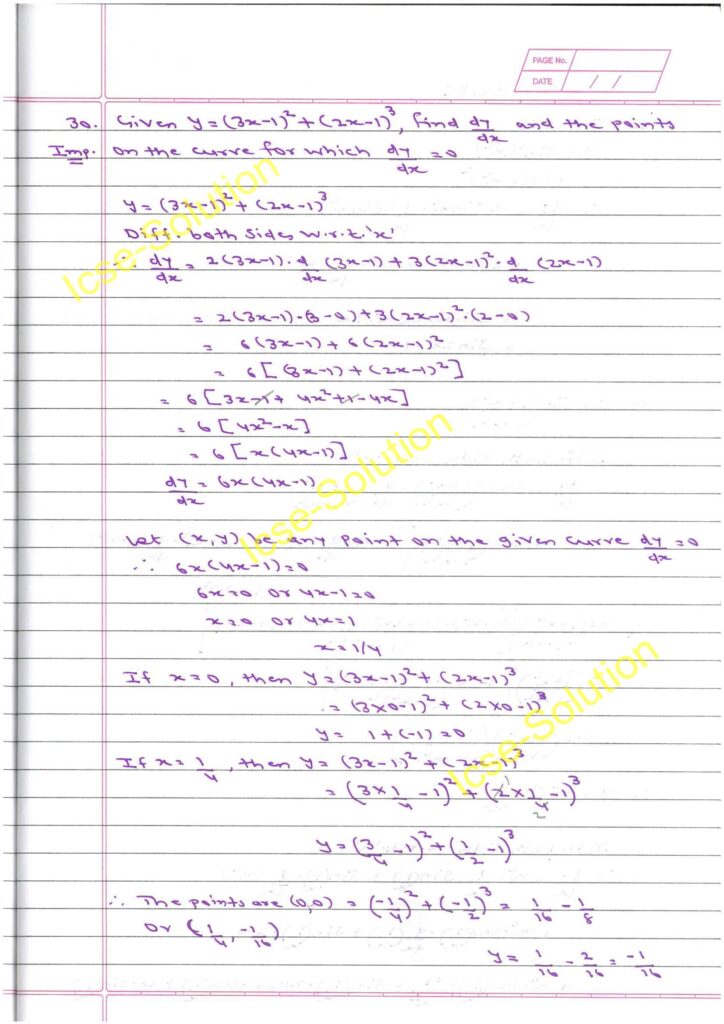 PAGE No.
DATE / /
30. Given y=(3x-1)²+(2x-1)³, find dy/dx and the points
Imp. on the curve for which dy/dx =0
y=(3x-1)²+(2x-1)³
Diff. both sides w.r.t.'x'
∴ dy/dx = 2(3x-1)·d/dx (3x-1)+3(2x-1)²·d/dx (2x-1)
= 2(3x-1)·(3-0)+3(2x-1)²·(2-0)
= 6(3x-1)+6(2x-1)²
= 6[(3x-1)+(2x-1)²]
= 6[3x-1+4x²+1-4x]
= 6[4x²-x]
= 6[x(4x-1)]
dy/dx = 6x(4x-1)
Let (x,y) be any point on the given curve dy/dx =0
∴ 6x(4x-1)=0
6x=0 or 4x-1=0
x=0 or 4x=1
x=1/4
If x=0, then y=(3x-1)²+(2x-1)³
= (3×0-1)²+(2×0-1)³
y= 1+(-1)=0
If x=1/4, then y=(3x-1)²+(2x-1)³
= (3×1/4-1)²+(2×1/4-1)³
y=(3/4-1)²+(1/2-1)³
∴ The points are (0,0) = (-1/4)²+(-1/2)³ = 1/16-1/8
or (1/4, -1/16)
y= 1/16-2/16=-1/16
Icse-Solution
Icse-Solution
Icse-Solution